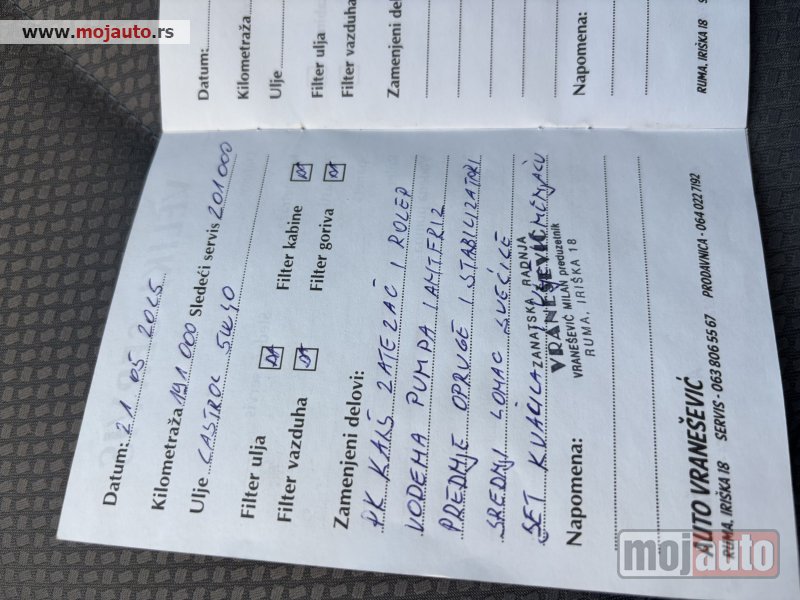 www.mojauto.rs
Datum:
Kilometraža
Ulje
Filter ulja
Filter vazduha
Zamenjeni delovi:
Napomena:
RUMA, IRIŠKA 18
Datum: 21 05 2025
Kilometraža 191 000 Sledeći servis 201 000
Ulje CASTROL 5W40
Filter ulja DA Filter kabine DA
Filter vazduha DA Filter goriva DA
Zamenjeni delovi:
PK KAIŠ ZATEZAČ I ROLER
VODENA PUMPA I ANTIFRIZ
PREDNJE OPRUGE I STABILIZATORI
SREDNJI LONAC SVEĆICE
SET KVAČILA MENJAČU
ZANATSKA RADNJA
VRANEŠEVIĆ
VRANEŠEVIĆ MILAN preduzetnik
RUMA, IRIŠKA 18
Napomena:
AUTO VRANEŠEVIĆ
RUMA, IRIŠKA 18 SERVIS - 063 806 55 67 PRODAVNICA - 064 022 7192
mojauto